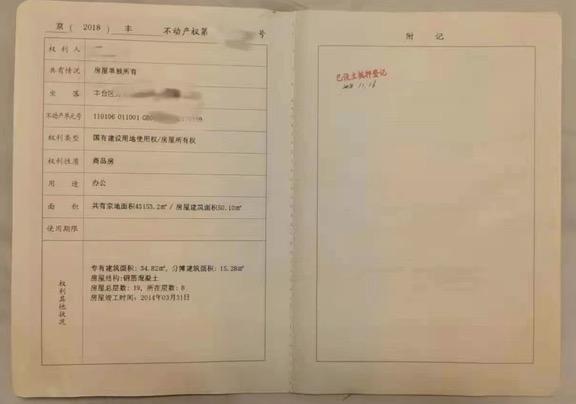 京（2018）丰 不动产权第 号
权利人
共有情况 房屋单独所有
坐落 丰台区
不动产单元号 110106 011001 GB0
权利类型 国有建设用地使用权/房屋所有权
权利性质 商品房
用途 办公
面积 共有宗地面积45153.2㎡/房屋建筑面积50.10㎡
使用期限
权利其他状况
专有建筑面积：34.82㎡，分摊建筑面积：15.28㎡
房屋结构：钢筋混凝土
房屋总层数：19，所在层数：8
房屋竣工时间：2014年03月31日
附记
已设立抵押登记